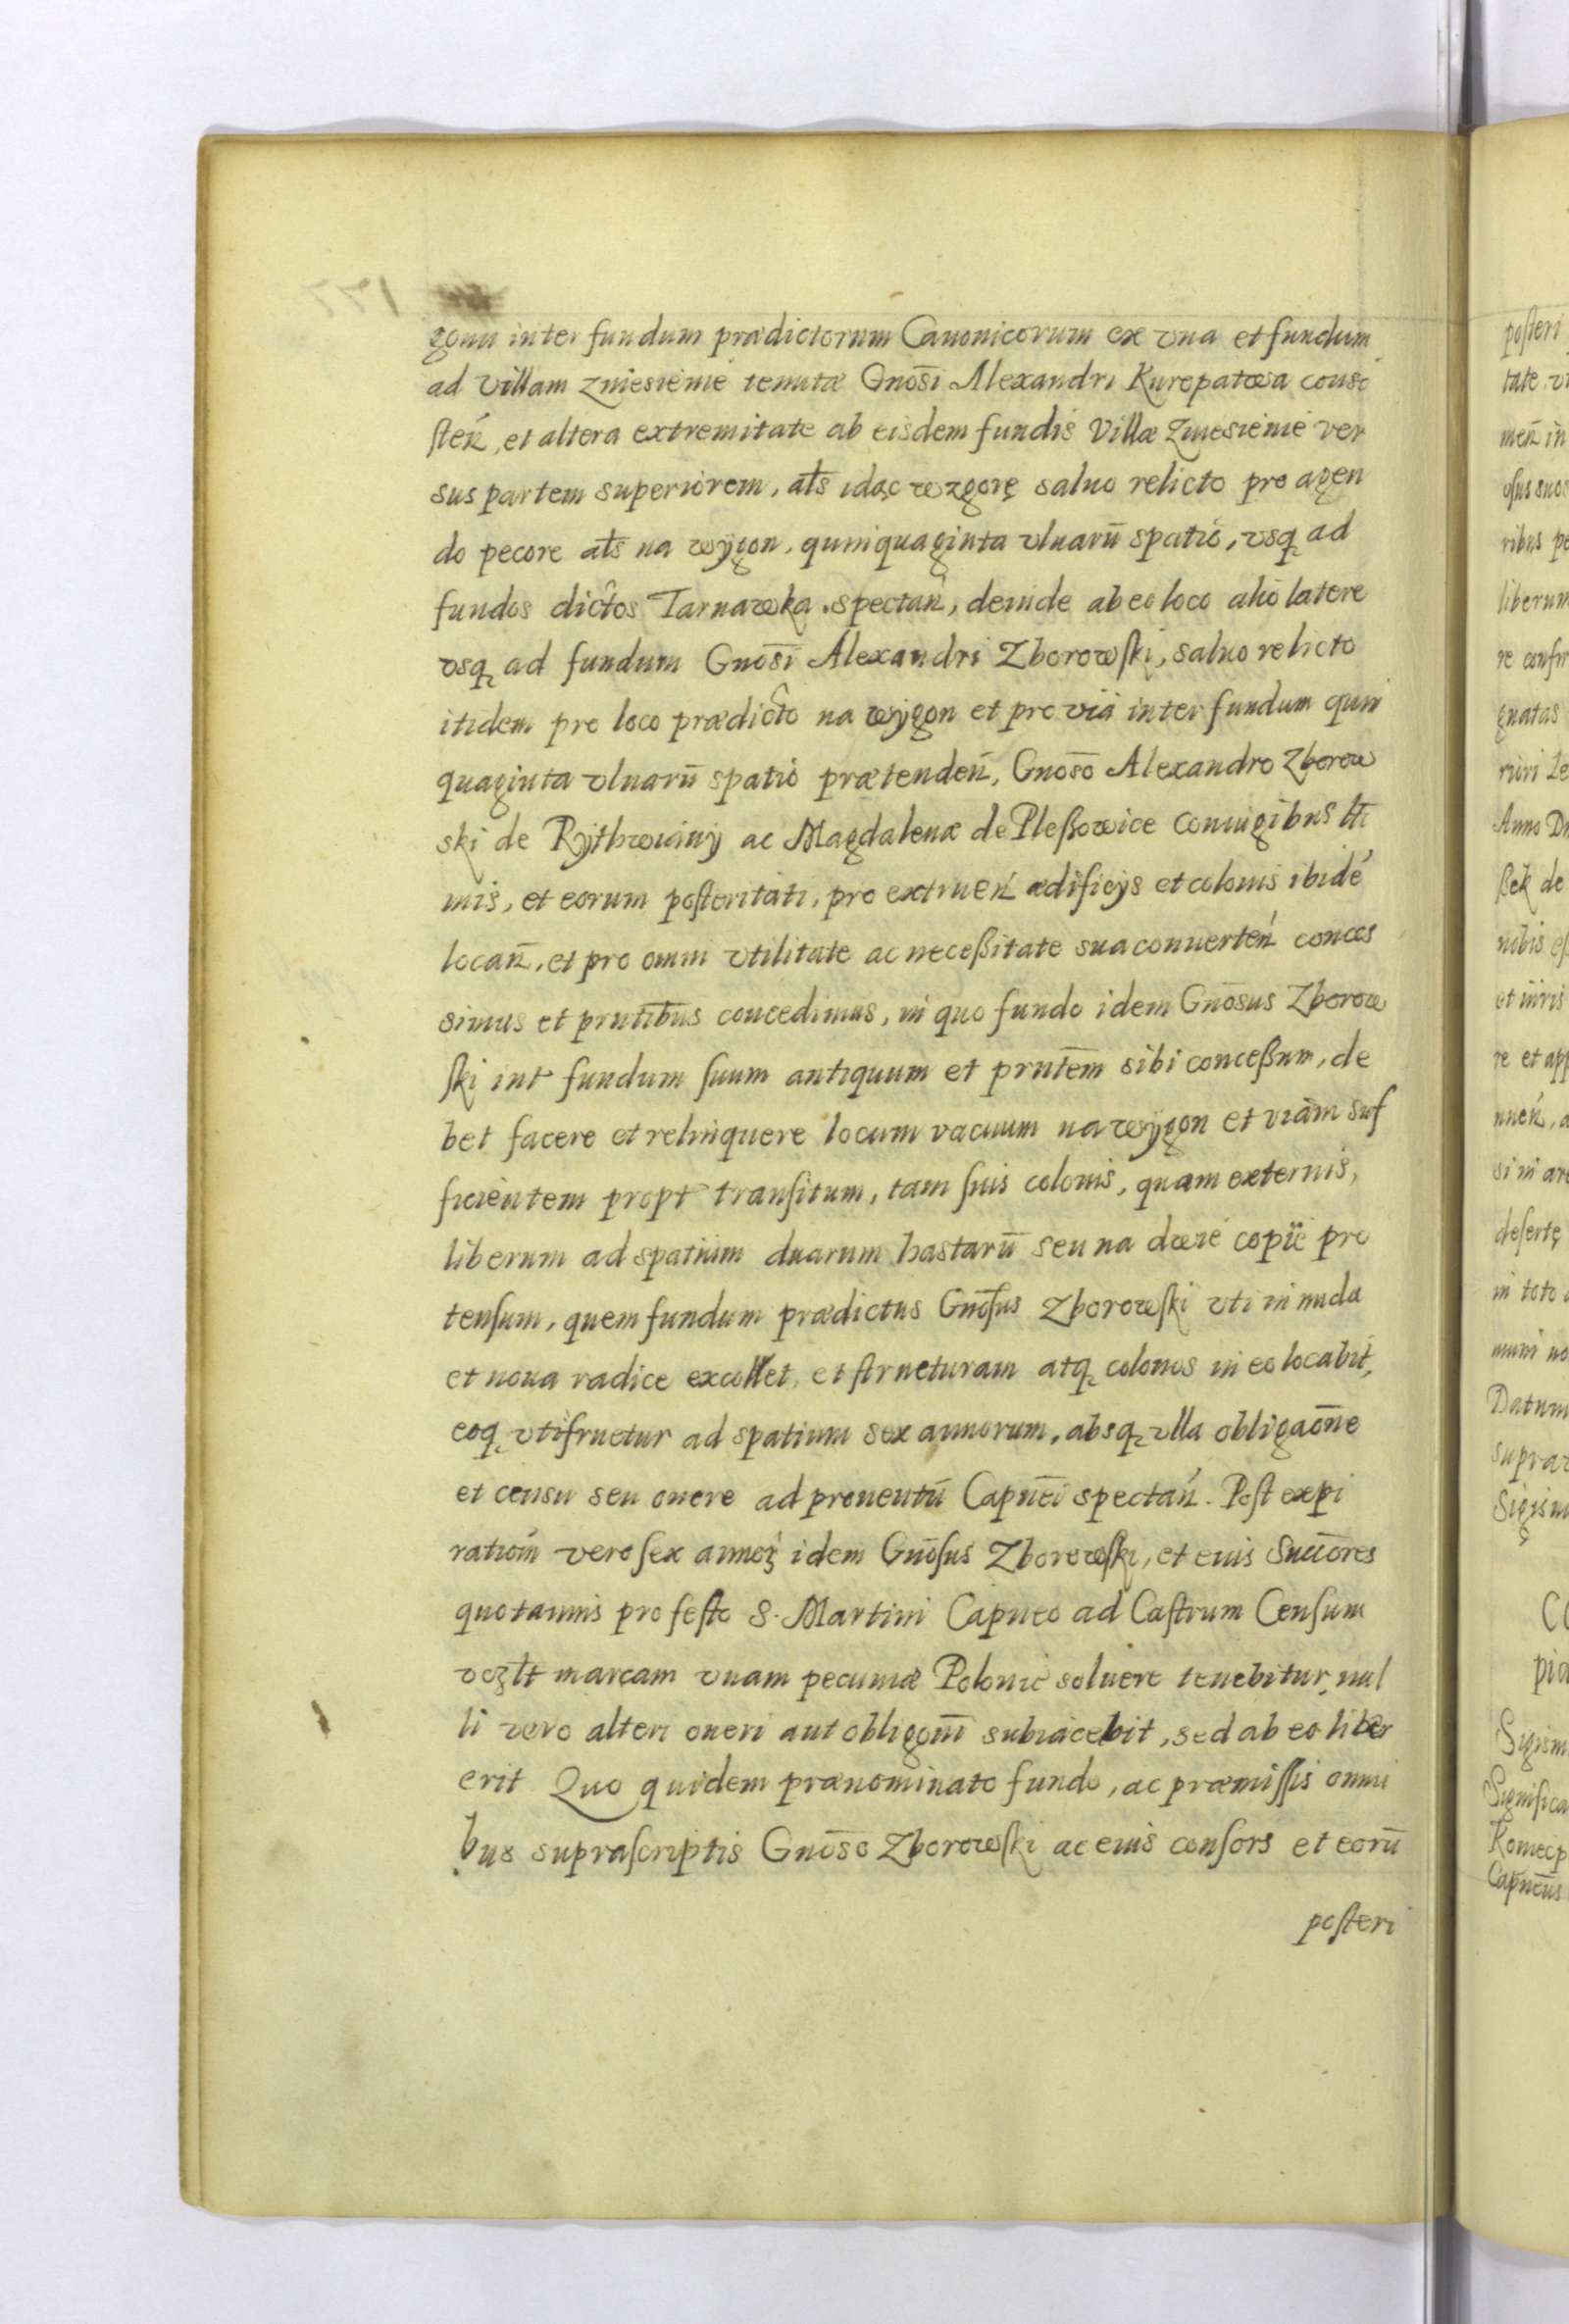 gonu inter fundum prædictorum Canonicorum ex vna et fundum
ad villam Zniesienie tenutæ Gnosi Alexandri Kuropatwa consi
steń, et altera extremitate ab eisdem fundis Villæ Zniesienie ver
sus partem superiorem, als idąc wzgorę saluo relicto pro agen
do pecore als na wÿgon, quinquaginta vlnarū spatio, vsq ad
fundos dictos Tarnawka spectań, deinde ab eo loco alio latere
vsq ad fundum Gnosi Alexandri Zborowski, saluo relicto
itidem pro loco prædicto na wÿgon et pro viā inter fundum quin
quaginta vlnarū spatio prætendeń, Gnoso Alexandro Zborow
ski de Rÿthwianÿ ac Magdalenæ de Pleßowice coniugibus ltī
mis, et eorum posteritati, pro extrueń ædificÿs et colonis ibidé
locań, et pro omni vtilitate ac neceßitate sua conuerteń conces
simus et prntibus concedimus, in quo fundo idem Gnosus Zborow
ski int fundum suum antiquum et prntem sibi conceßum, de
bet facere et relinquere locum vacuum na wÿgon et viam suf
ficientem propt transitum, tam suis colonis, quam externis,
liberum ad spatium duarum hastarū seu na dwie copie pro
tensum, quem fundum prædictus Gnosus Zborowski vti in nuda
et noua radice excollet, et structuram atq colonos in eo locabit,
eoq vtifruetur ad spatium sex annorum, absq vlla obligaone
et censu seu onere ad prouentū Capnei spectań. Post expi
rationi vero sex annoꝝ idem Gnosus Zborowski, et eius Succores
quotannis pro festo S. Martini Capneo ad Castrum Censum
vczlt marcam vnam pecuniæ Polonic soluere tenebitur, nul
li vero alteri oneri aut obligoni subiacebit, sed ab eo liber
erit Quo quidem prænominato fundo, ac præmissis omni
bus suprascriptis Gnoso Zborowski ac eius consors et eorū
posteri
posteri
tate vi
meń in
ribus po
liberum
re confir
gnatas
Anno Dn
ßek de
et iuris
re et app
si in are
deserte
in toto
muni no
Datum
supra
Sigism
CO
pia
Sigism
Significa
Capneus